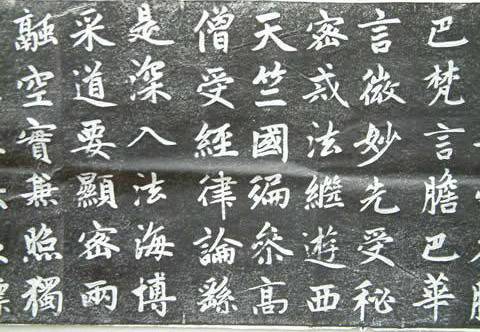 巴梵言膽巴華
言微妙先受秘
密戒法繼遊西
天竺國徧參高
僧受經律論繇
是深入法海博
采道要顯密兩
融空實兼照獨